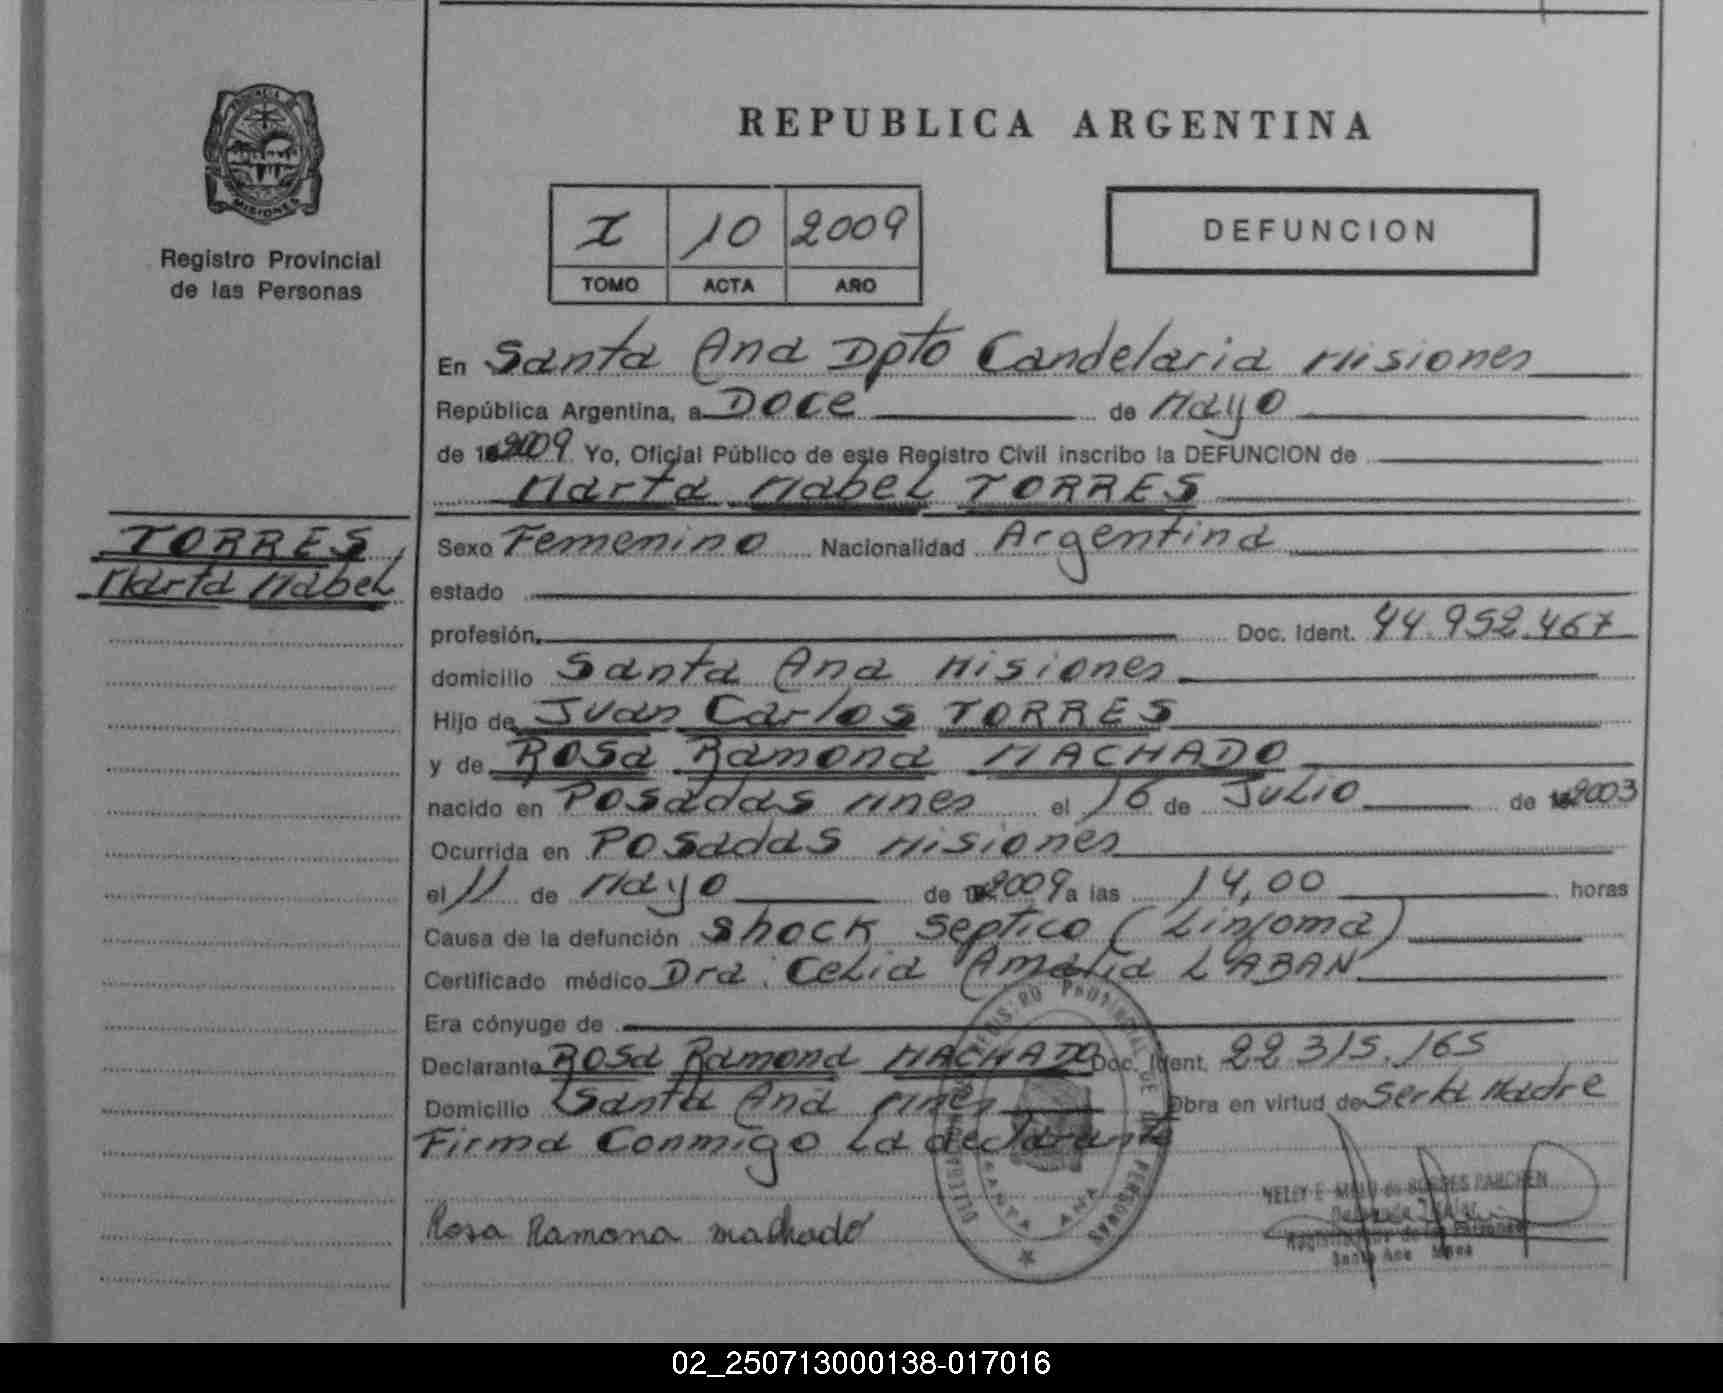 PROVINCIA DE
MISIONES
Registro Provincial
de las Personas
REPUBLICA ARGENTINA
I 10 2009
TOMO ACTA AÑO
DEFUNCION
En Santa Ana Dpto Candelaria Misiones
República Argentina, a Doce de Mayo
de 2009 Yo, Oficial Público de este Registro Civil inscribo la DEFUNCION de
Marta Mabel TORRES
TORRES
Marta Mabel
Sexo Femenino Nacionalidad Argentina
estado
profesión Doc. Ident. 44.952.467
domicilio Santa Ana Misiones
Hijo de Juan Carlos TORRES
y de Rosa Ramona MACHADO
nacido en Posadas Mnes el 16 de Julio de 2003
Ocurrida en Posadas Misiones
el 11 de Mayo de 2009 a las 14,00 horas
Causa de la defunción Shock Septico (Linfoma)
Certificado médico Dra. Celia Amalia LABAN
Era cónyuge de
Declarante Rosa Ramona MACHADO Doc. Ident. 22 315.165
Domicilio Santa Ana Mnes Obra en virtud de Ser la Madre
Firma Conmigo La declarante
Rosa Ramona machado
REGISTRO PROVINCIAL DE LAS PERSONAS
SANTA ANA
Santa Ana Mnes
02_250713000138-017016